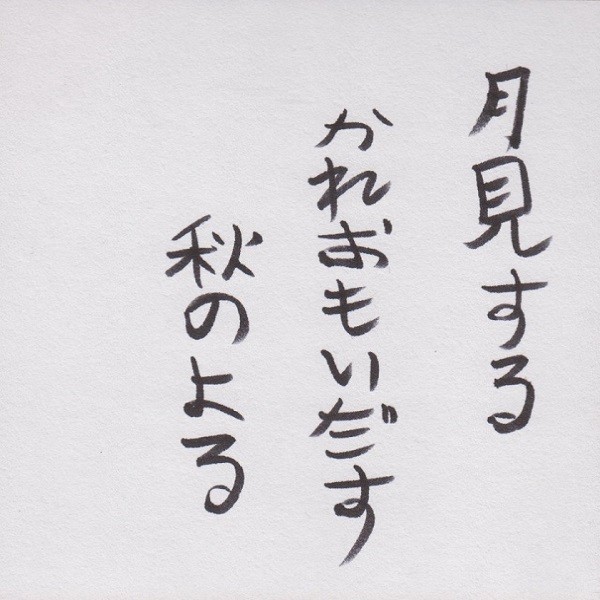 月見する
かれおもいだす
秋のよる